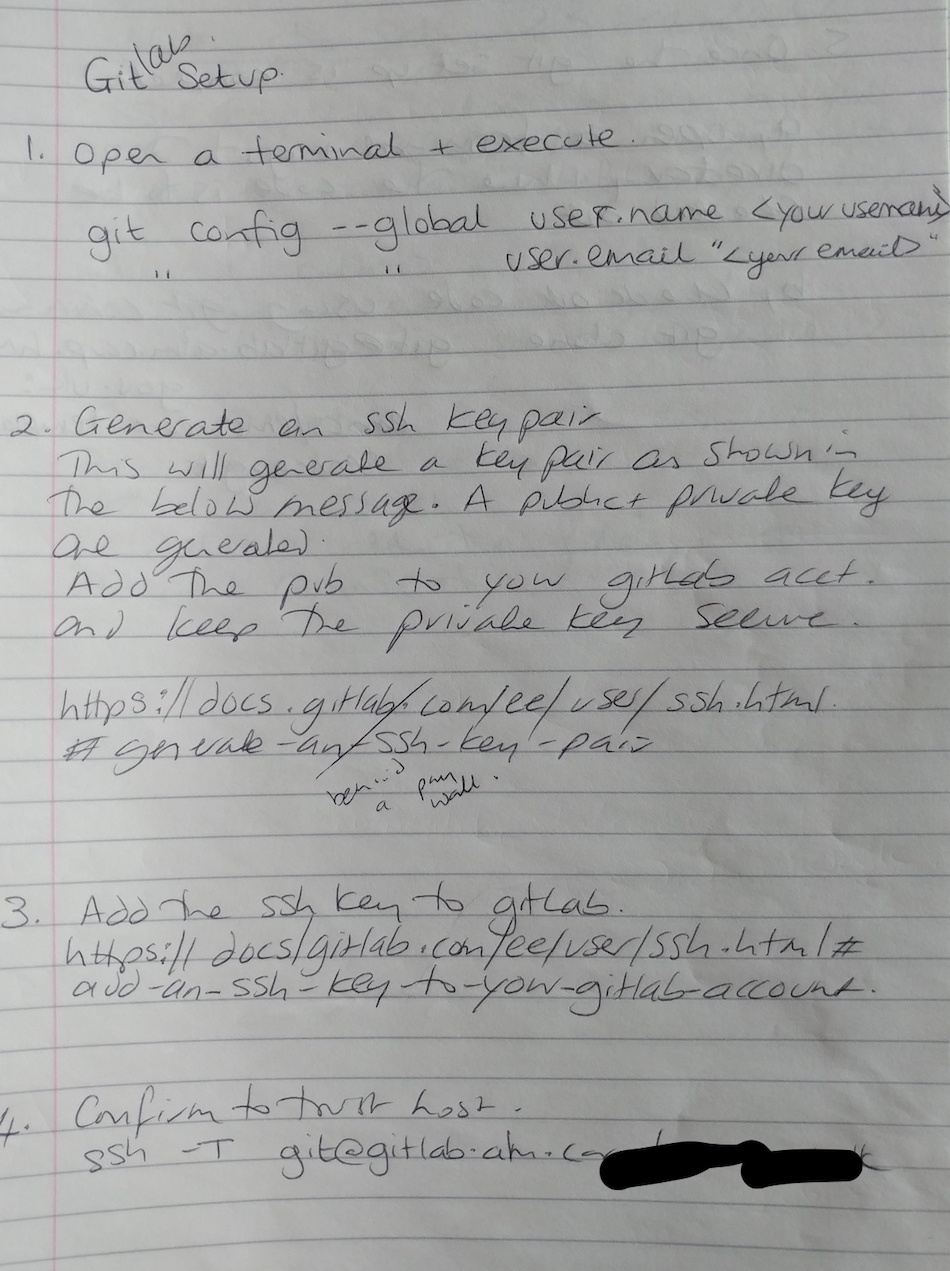 Gitlab Setup.
1. Open a terminal + execute.
git config --global user.name <your username>
" " user.email "<your email>"
2. Generate an ssh key pair
This will generate a key pair as shown in
the below message. A public + private key
are generated.
Add the pub to your gitlab acct.
and keep the private key secure.
https://docs.gitlab.com/ee/user/ssh.html.
# generate-an-ssh-key-pair
behind a pay wall.
3. Add the ssh key to gitlab.
https://docs/gitlab.com/ee/user/ssh.html#
add-an-ssh-key-to-your-gitlab-account.
4. Confirm to trust host.
ssh -T git@gitlab.